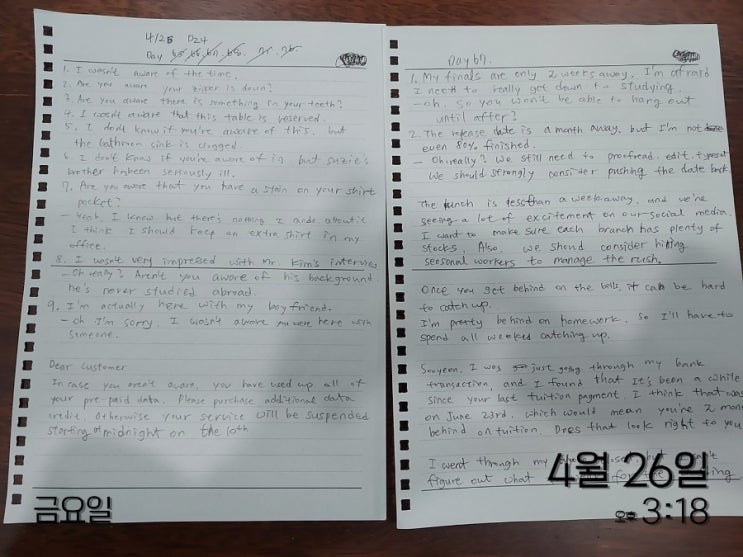 4/25 D24
Day 65, 66, 67, 68, 71, 76.
1. I wasn't aware of the time.
2. Are you aware your zipper is down?
3. Are you aware there is something in your teeth?
4. I wasn't aware that this table is reserved.
5. I don't know if you're aware of this, but
the bathroom sink is clogged.
6. I don't know if you're aware of it, but suzie's
brother been seriously ill.
7. Are you aware that you have a stain on your shirt
pocket?
- Yeah. I know. but there's nothing I about it
I think I should keep an extra shirt in my
office.
8. I wasn't very impressed with Mr. Kim's interview
- Oh really? Aren't you aware of his background
he's never studied abroad.
9. I'm actually here with my boyfriend.
- Oh I'm sorry, I wasn't aware you were here with
someone.
Dear Customer
In case you aren't aware, you have used up all of
your pre-paid data. Please purchase additional data
credit, Otherwise your service will be suspended
starting at midnight on the 10th
금요일
Day 67.
1. My finals are only 2 weeks away. I'm afraid
I need to really get down to studying.
- Oh. so you won't be able to hang out
until after?
2. The release date is a month away, but I'm not
even 80% finished.
- Oh really? We still need to proofread. edit. typeset
We should strongly consider pushing the date back.
The is less than a week away, and we're
seeing a lot of excitement on our social media.
I want to make sure each branch has plenty of
stocks. Also, we should consider hiring
seasonal workers to manage the rush.
Once you get behind on the bills, it can be hard
to catch up.
I'm pretty behind on homework. So I'll have to
spend all weekend catching up.
Sooyeon, I was just going through my bank
transaction, and I found that it's been a while
since your last tuition payment. I think that was
on June 23rd. which would mean you're 2 mon
behind on tuition. Does that look right to you
I went through my
figure out what
4월 26일
오후 3:18